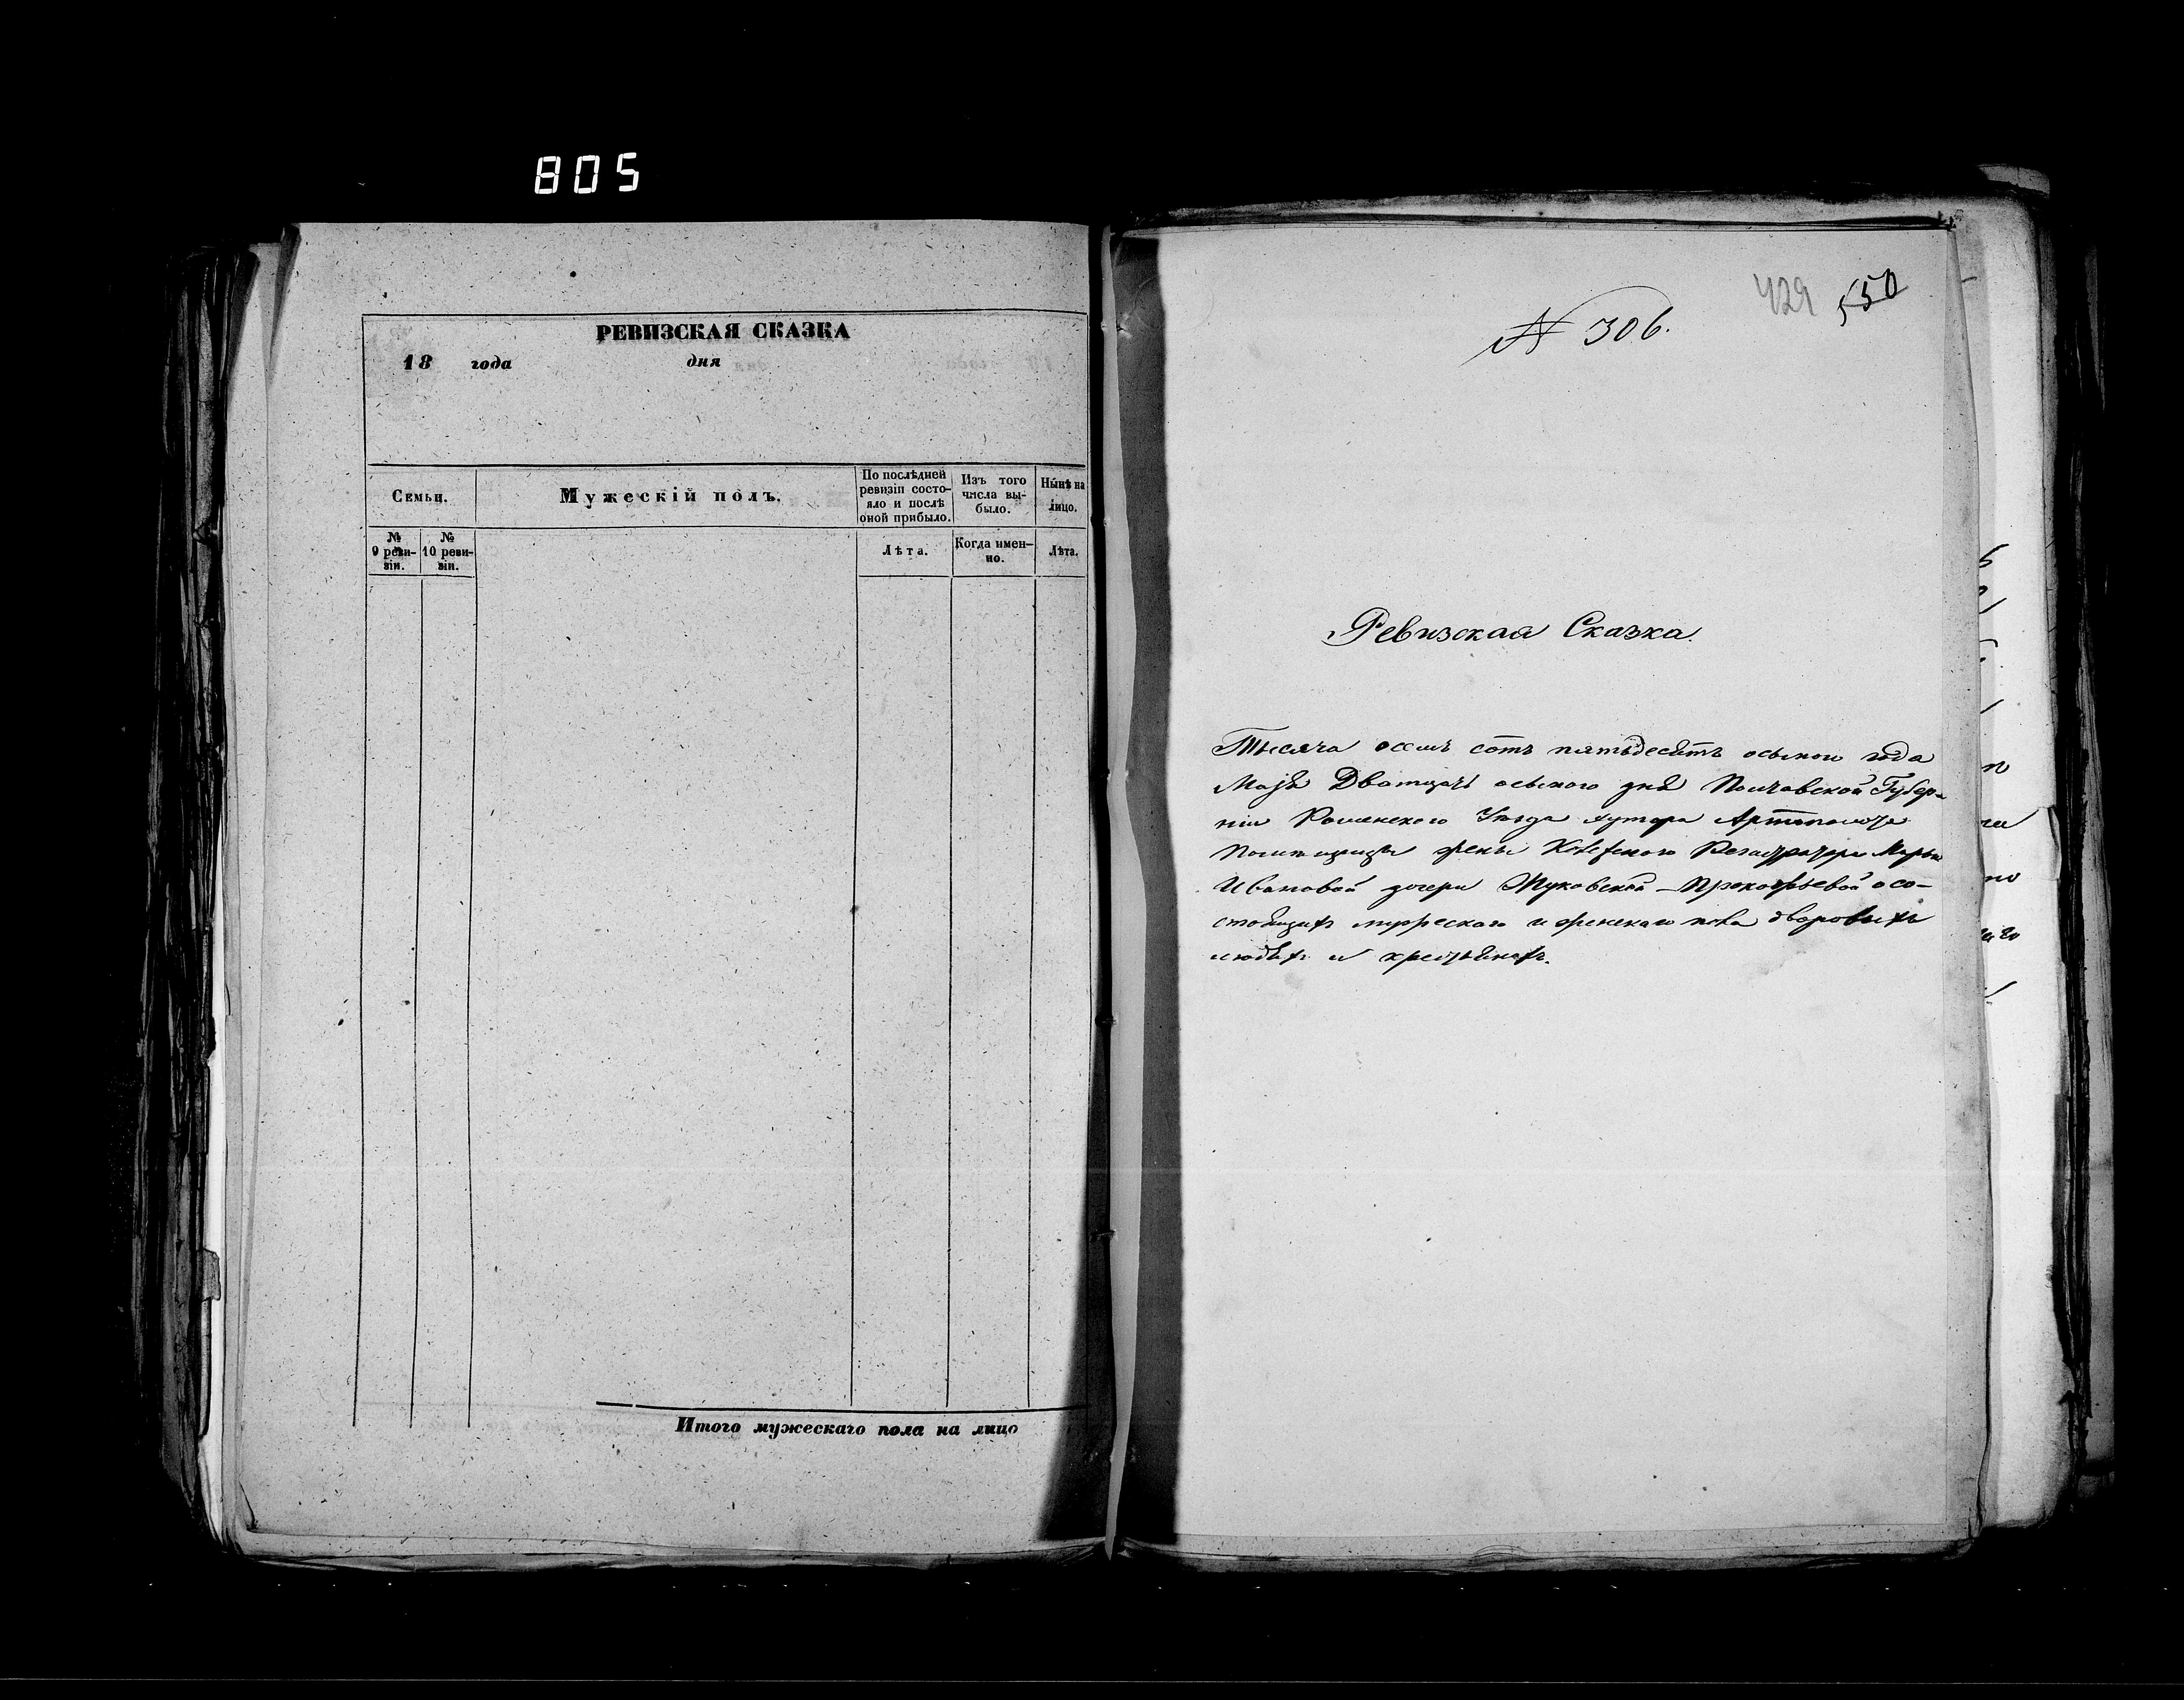 805
РЕВИЗСКАЯ СКАЗКА
18 года дня
Семьи.
Мужескій полъ.
По послѣдней ревизіи состо-
яло и послѣ оной прибыло.
Изъ того числа вы-
было.
Нынѣ на лицо.
№ 9 реви-
зіи.
№ 10 реви-
зіи.
Лѣта.
Когда имен-
но.
Лѣта.
Итого мужескаго пола на лицо
429 550
N 306.
Ревизская Сказка.
Тысяча осемъ сотъ пятьдесятъ осьмои года
Маія Дватцать осьмого дня Полтавской Губер-
ніи Роменского Уезда хутора Артополота
Помѣщицы жены Колежского Регистратора Марьи
Ивановой дочери Жуковской-Прокофьевой о со-
стоящихъ мужеского и женского пола дворовыхъ
людяхъ и крестьянахъ.